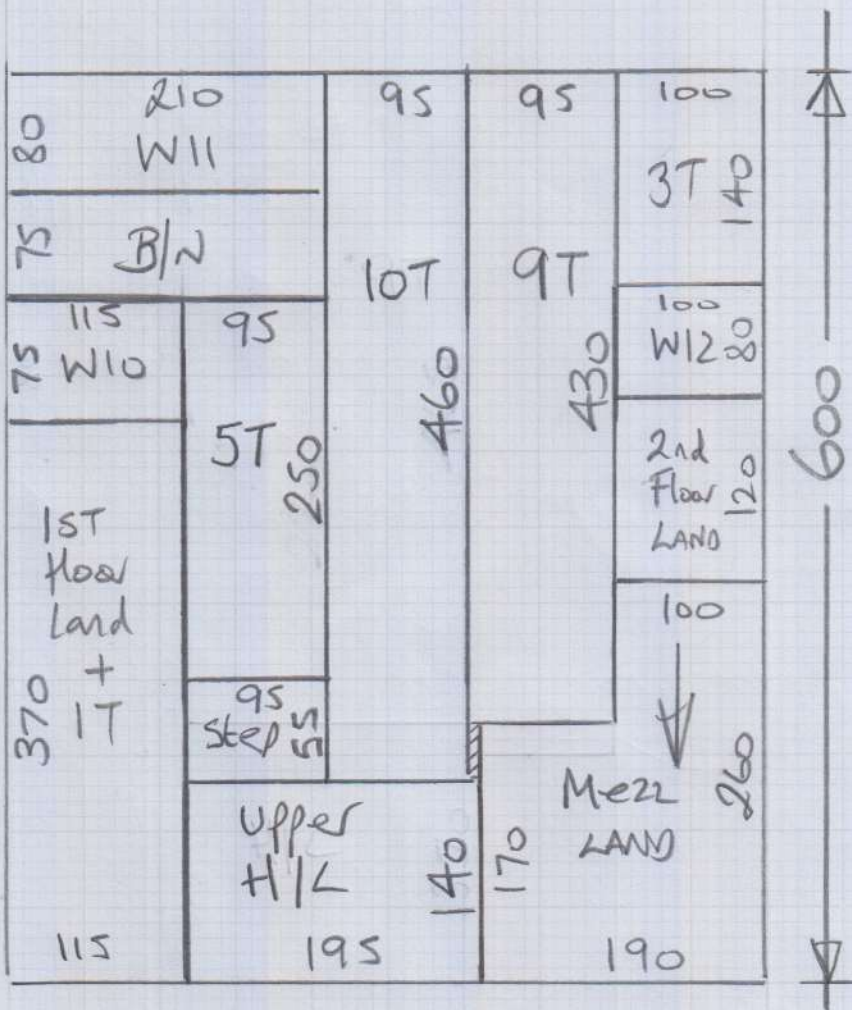 210
80
W11
75
B/N
115
75
W10
95
5T
250
1ST
Floor
Land
+
1T
370
115
95
Step
55
Upper
H/L
140
195
95
10T
460
95
9T
430
100
3T
140
100
W12
80
2nd
Floor
LAND
120
100
Mezz
LAND
260
170
190
600